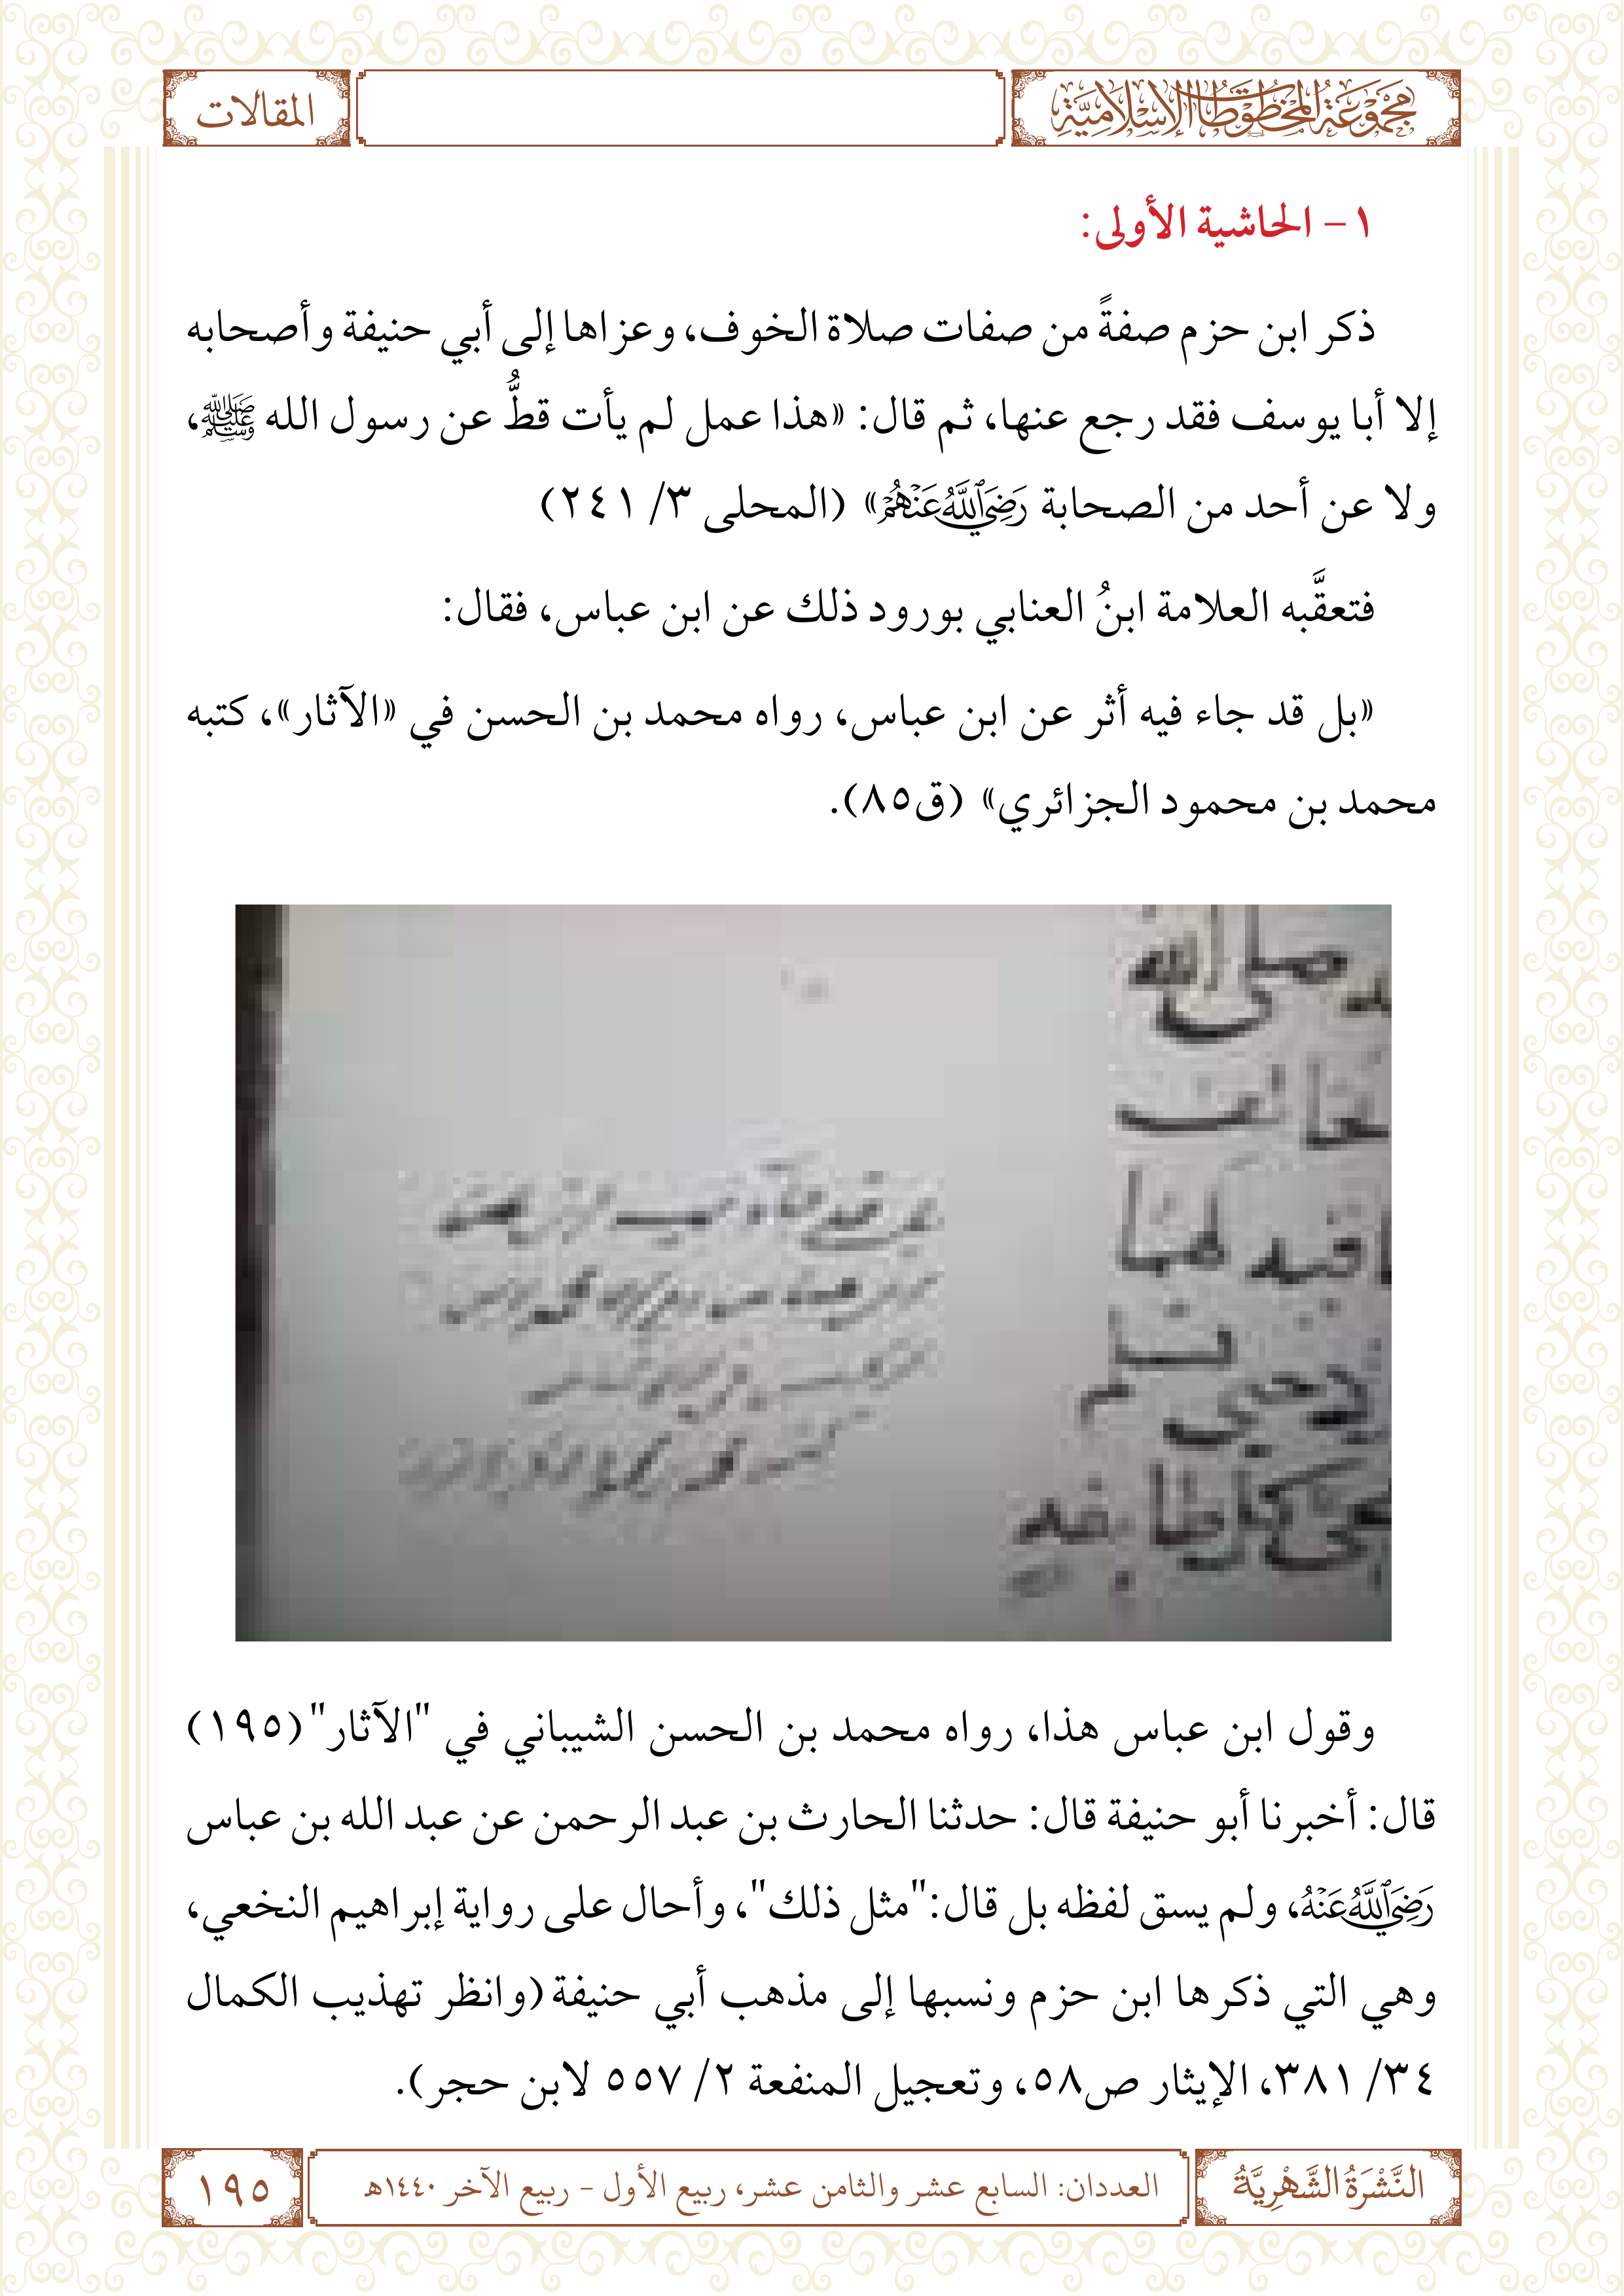 مجموعة المخطوطات الإسلامية
المقالات
١- الحاشية الأولى:
ذكر ابن حزم صفةً من صفات صلاة الخوف، وعزاها إلى أبي حنيفة وأصحابه
إلا أبا يوسف فقد رجع عنها، ثم قال: «هذا عمل لم يأت قطُّ عن رسول الله ﷺ،
ولا عن أحد من الصحابة رَضِيَ اللَّهُ عَنْهُمْ» (المحلى ٣/ ٢٤١)
فتعقَّبه العلامة ابنُ العنابي بورود ذلك عن ابن عباس، فقال:
«بل قد جاء فيه أثر عن ابن عباس، رواه محمد بن الحسن في «الآثار»، كتبه
محمد بن محمود الجزائري» (ق٨٥).
صلى الله
وقول ابن عباس هذا، رواه محمد بن الحسن الشيباني في "الآثار"(١٩٥)
قال: أخبرنا أبو حنيفة قال: حدثنا الحارث بن عبد الرحمن عن عبد الله بن عباس
رَضِيَ اللَّهُ عَنْهُ، ولم يسق لفظه بل قال:"مثل ذلك"، وأحال على رواية إبراهيم النخعي،
وهي التي ذكرها ابن حزم ونسبها إلى مذهب أبي حنيفة(وانظر تهذيب الكمال
٣٤/ ٣٨١، الإيثار ص٥٨، وتعجيل المنفعة ٢/ ٥٥٧ لابن حجر).
النَّشْرَةُ الشَّهْرِيَّةُ
العددان: السابع عشر والثامن عشر، ربيع الأول - ربيع الآخر ١٤٤٠هـ
١٩٥